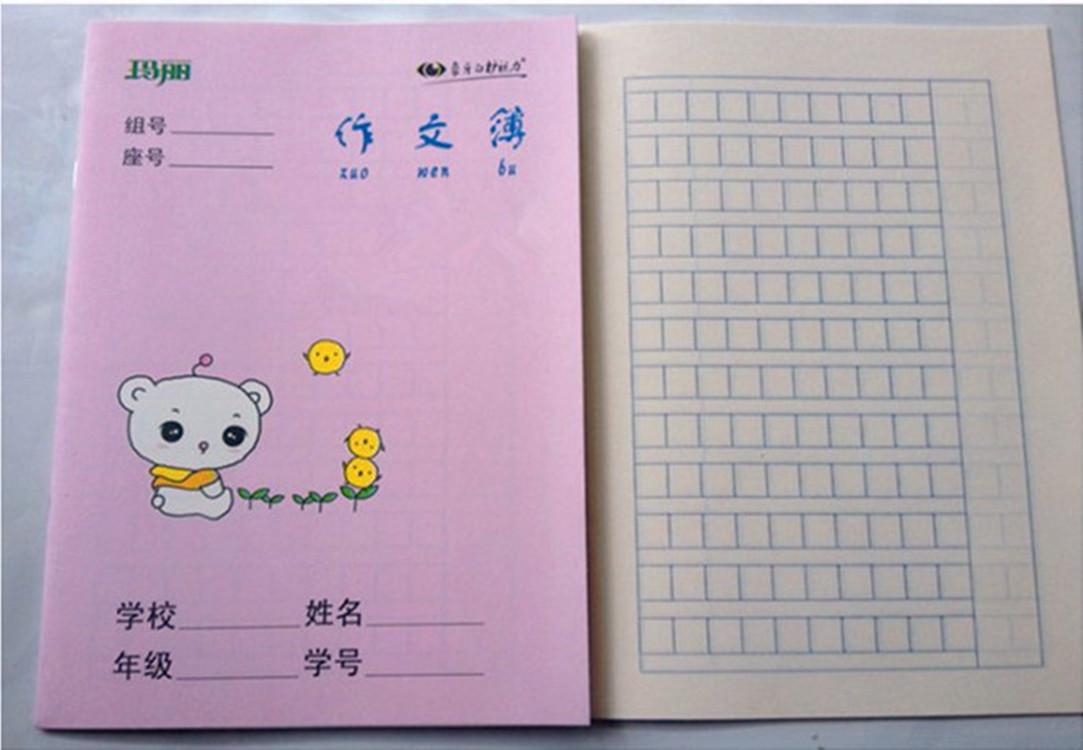 玛丽
组号
座号
作文簿
zuo wen bu
学校 姓名
年级 学号